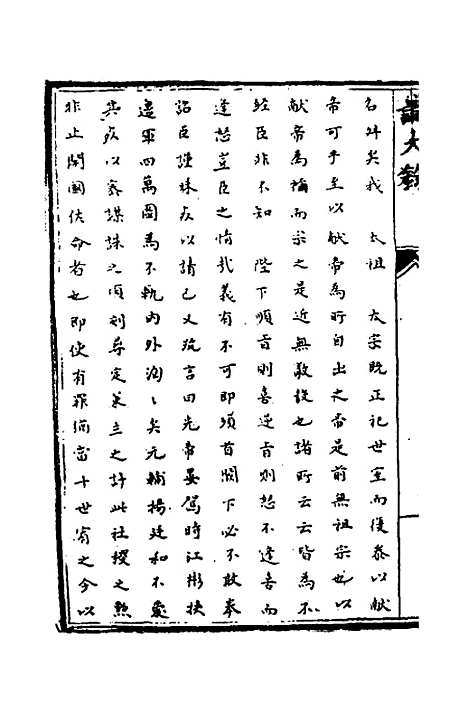 名舛矣我 太祖 太宗既正祀世室而復泰以獻
帝可乎至以獻帝為所自出之帝是前無祖宗也以
獻帝為禰而宗之是近無敬後也諸所云云皆為不
經臣非不知 陛下順旨則喜逆旨則怒不逢喜而
逢怒豈臣之情哉義有不可即頭首闕下必不敢奉
詔臣謹昧死以請已又疏言曰先帝晏駕時江彬挾
邊軍四萬圖為不軌內外洶洶矣元輔楊廷和不愛
其死以密謀誅之頃刻奪定策立之計此社稷之勲
非止開國佐命者也即使有罪猶當十世宥之今以